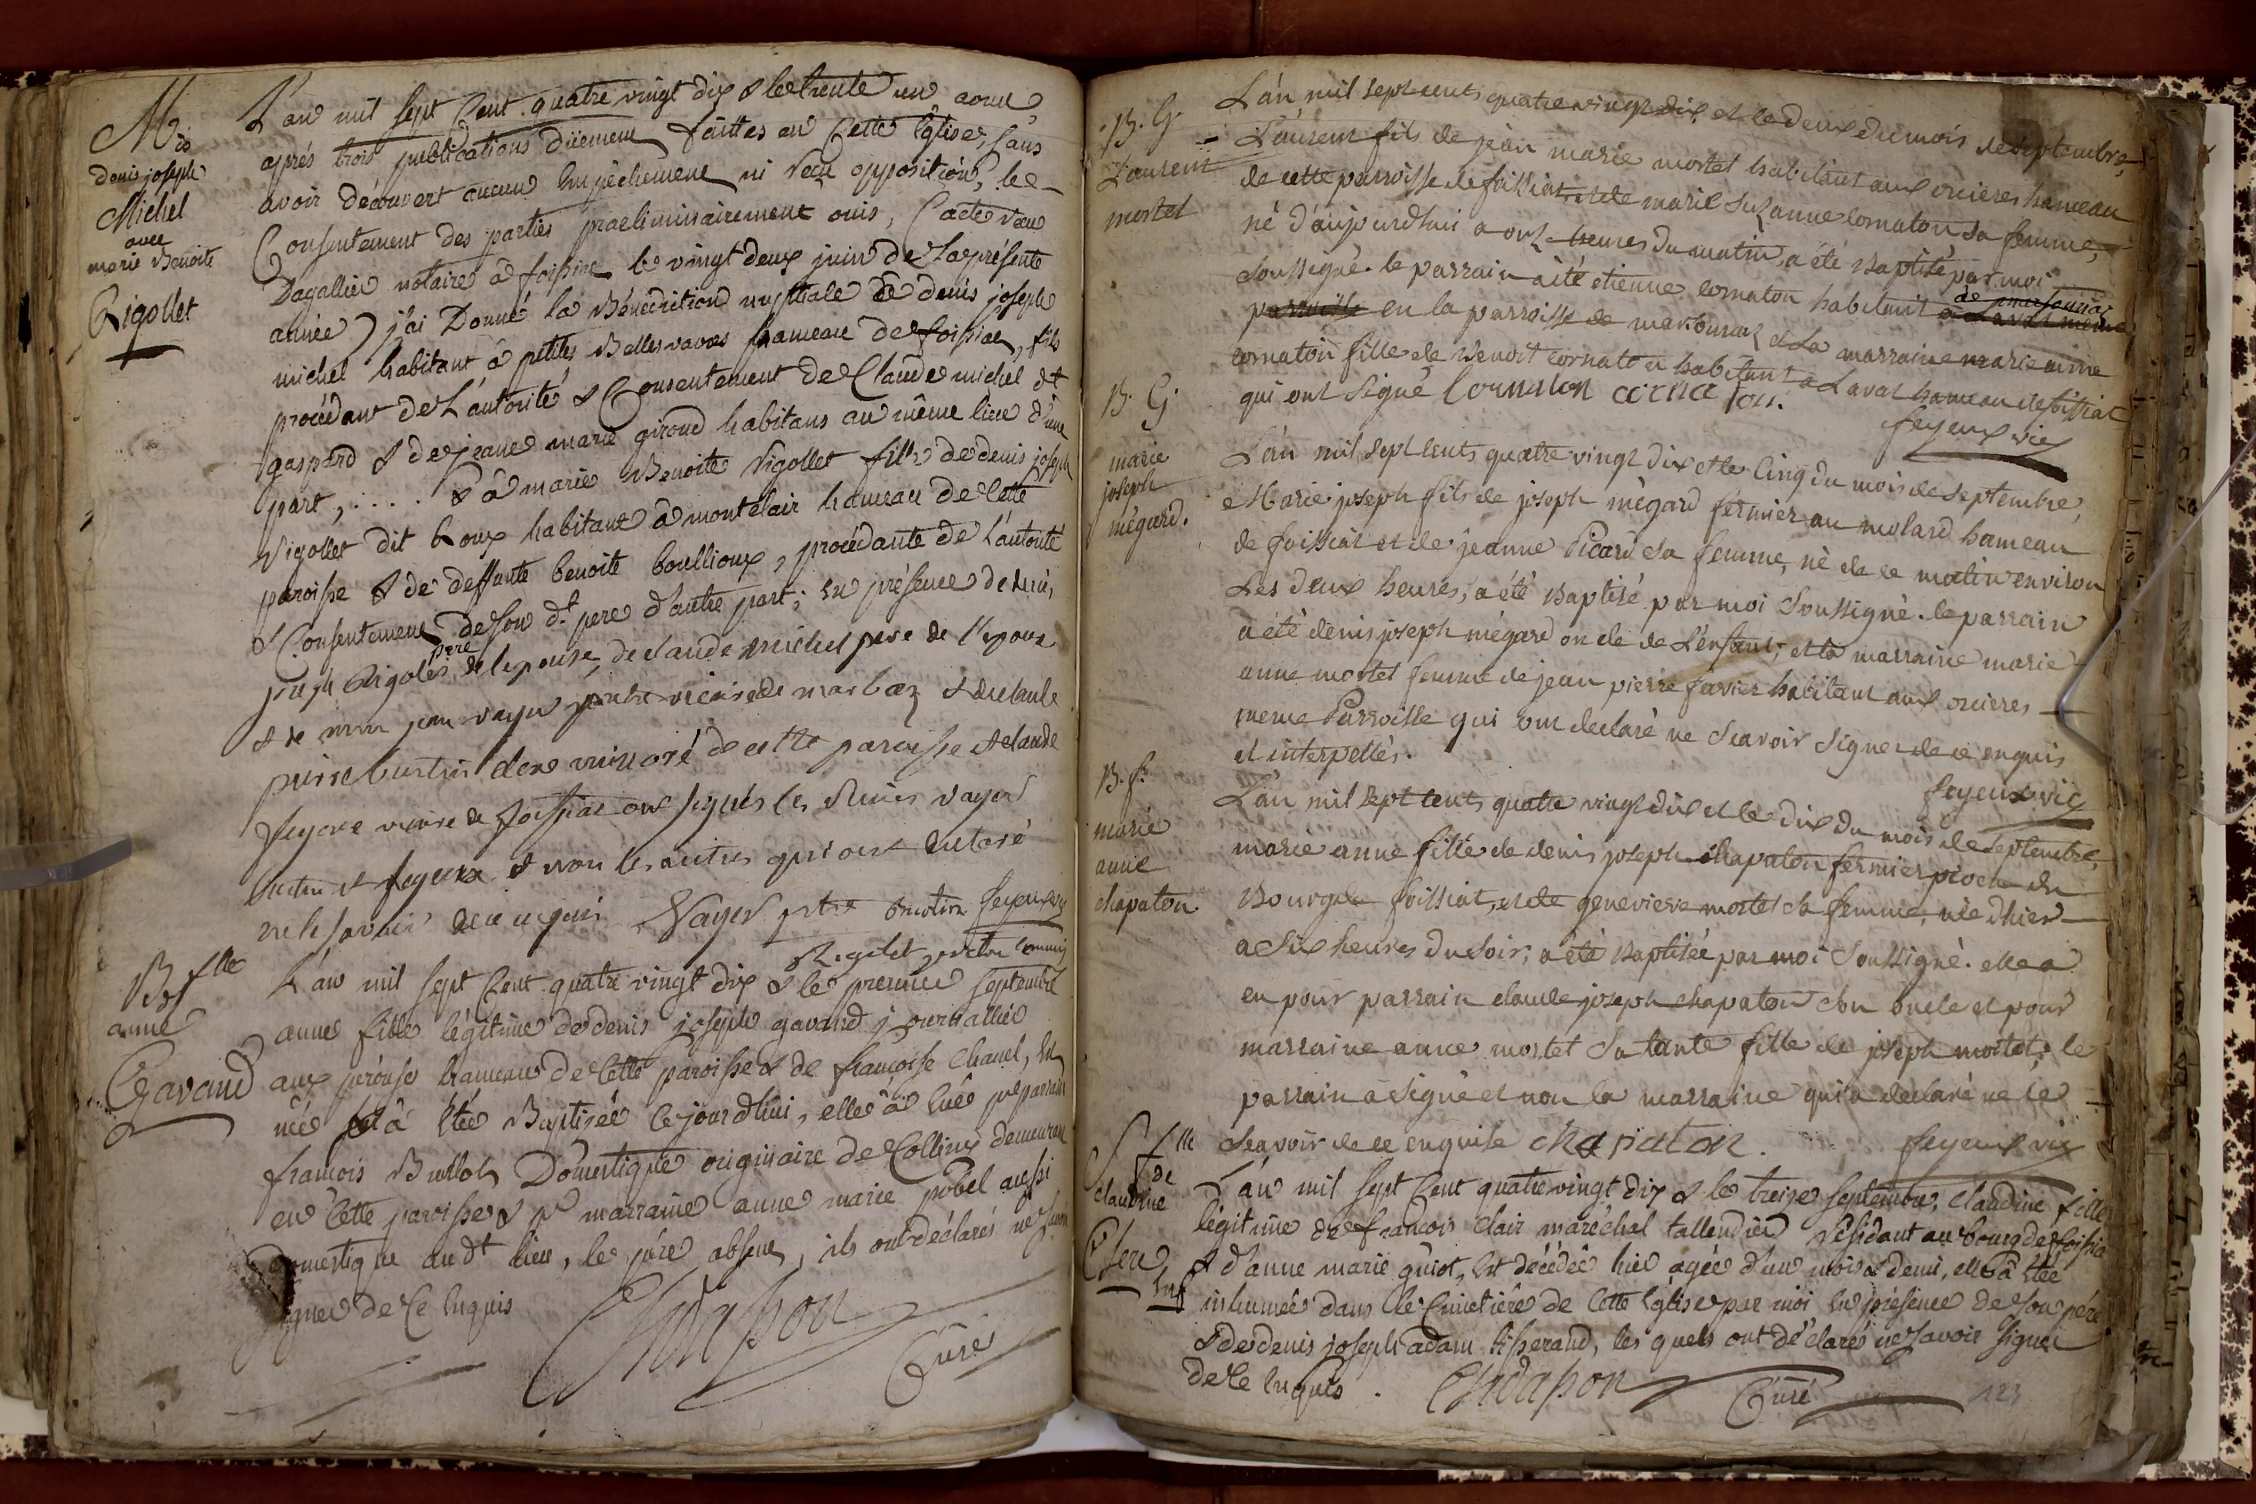 Mge
denis joseph
Michel
avec
marie Benoite
Rigollet
L'an mil sept Cent quatre vingt dix & le trente un aout,
aprés trois publications düement faittes en Cette Eglise, sans
avoir découvert aucun Empêchement ni reçu opposition, le
Consentement des parties praeliminairement ouis, (acte reçu
Dagallier notaire à foissiat le vingt deux juin de la présente
année) j'ai Donné la Bénédiction nuptiale à denis joseph
michel habitant à petites Bellesvavres hameau de foissiat, fils
procédant de L'autorité & Consentement de Claude michel dt
gaspard & de jeane marie giroud habitans au même lieu d'une
part, .... & à marie Benoite Rigollet fille de denis joseph
Rigollet dit Roux habitant à montclair hameau de Cette
paroisse & de deffunte benoite boullioux, procédante de L'autorité
& Consentement de son dt pere d'autre part; en présence de denis
joseph Rigolet pere de l'epouse, de claude michel pere de l'epoux
et de mre jean vayer pretre vicaire de marboz & de claude
pierre bustin clerc minoré de cette paroisse & claude
feyeux vicaire de foissiat ont signés les sieurs vayer
bustin et feyeux & non les autres qui ont declaré
ne le savoir de ce enquis Vayer ptre bustin feyeux vic
Rigolet greffier commis
B. flle
anne
Gavand
L'an mil sept Cent quatre vingt dix & le premier septembre
anne fille légitime de denis joseph gavand journallier
aux perouse hameau de Cette paroisse & de françoise Chanel, est
née et à Etée Baptisée Ce jourdhui, elle à Euée pr parrain
françois Bullot Domestique originaire de Colligny demeurant
en Cette paroisse & pr marraine anne marie pobel aussi
Domestique au dt lieu, le pére absent, ils ont déclarés ne savoir
signer de Ce Enquis Chidapon
Curé
B. G.
Laurent
mortel
L'an mil sept cents quatre vingt dix et le deux du mois de septembre,
Laurent fils de jean marie mortel habitant aux orcieres hameau
de cette parroisse de foissiat et de marie Suzanne cornaton sa femme,
né d'aujourdhui a onze heures du matin, a été Baptisé par moi
Soussigné. le parrain a été etienne cornaton habitant
de marsonnas
parroisse en la parroisse de marsonnas et La marraine marie aimé
cornaton fille de Benoit cornaton habitant a Laval hameau de foissiat
qui ont signé Cornaton corna ton.
feyeux vic
B. G.
marie
joseph
mégard.
L'an mil sept cents quatre vingt dix et le Cinq du mois de septembre,
Marie joseph fils de joseph mégard fermier au molard hameau
de foissiat et de jeanne Picard sa femme, né de ce matin environ
Les deux heures, a été Baptisé par moi Soussigné. le parrain
a été denis joseph mégard oncle de L'enfant, et la marraine marie
anne mortel femme de jean pierre favier habitant aux orcieres
meme Parroisse qui ont declaré ne Scavoir Signer de ce enquis
et interpellés.
feyeux vic
B. f.
marie
anne
chapaton
L'an mil sept cents quatre vingt dix et le dix du mois de septembre,
marie anne fille de denis joseph chapaton fermier proche du
Bourg de foissiat, et de genevieve mortel sa femme, née d'hier
a Six heures du Soir, a été Baptisée par moi Soussigné. elle a
eu pour parrain claude joseph chapaton Son oncle et pour
marraine anne mortel sa tante fille de joseph mortel; le
parrain a signé et non la marraine qui a declaré ne le
Scavoir de ce enquise chapaton. feyeux vic
S flle
de
claudine
Clerc
Enf
L'an mil sept Cent quatre vingt dix & le treize septembre, Claudine fille
légitime de françois Clair maréchal tallendier résidant au bourg de foissiat
& d'anne marie guiot, est décédée hier agée d'un mois & demi, elle à Etée
inhumée dans le Cimetière de Cette Eglise par moi En présence de son pére
& de denis joseph adam tisserand, les quels ont déclarés ne savoir signer
de Ce Enquis. Chidapon Curé
123